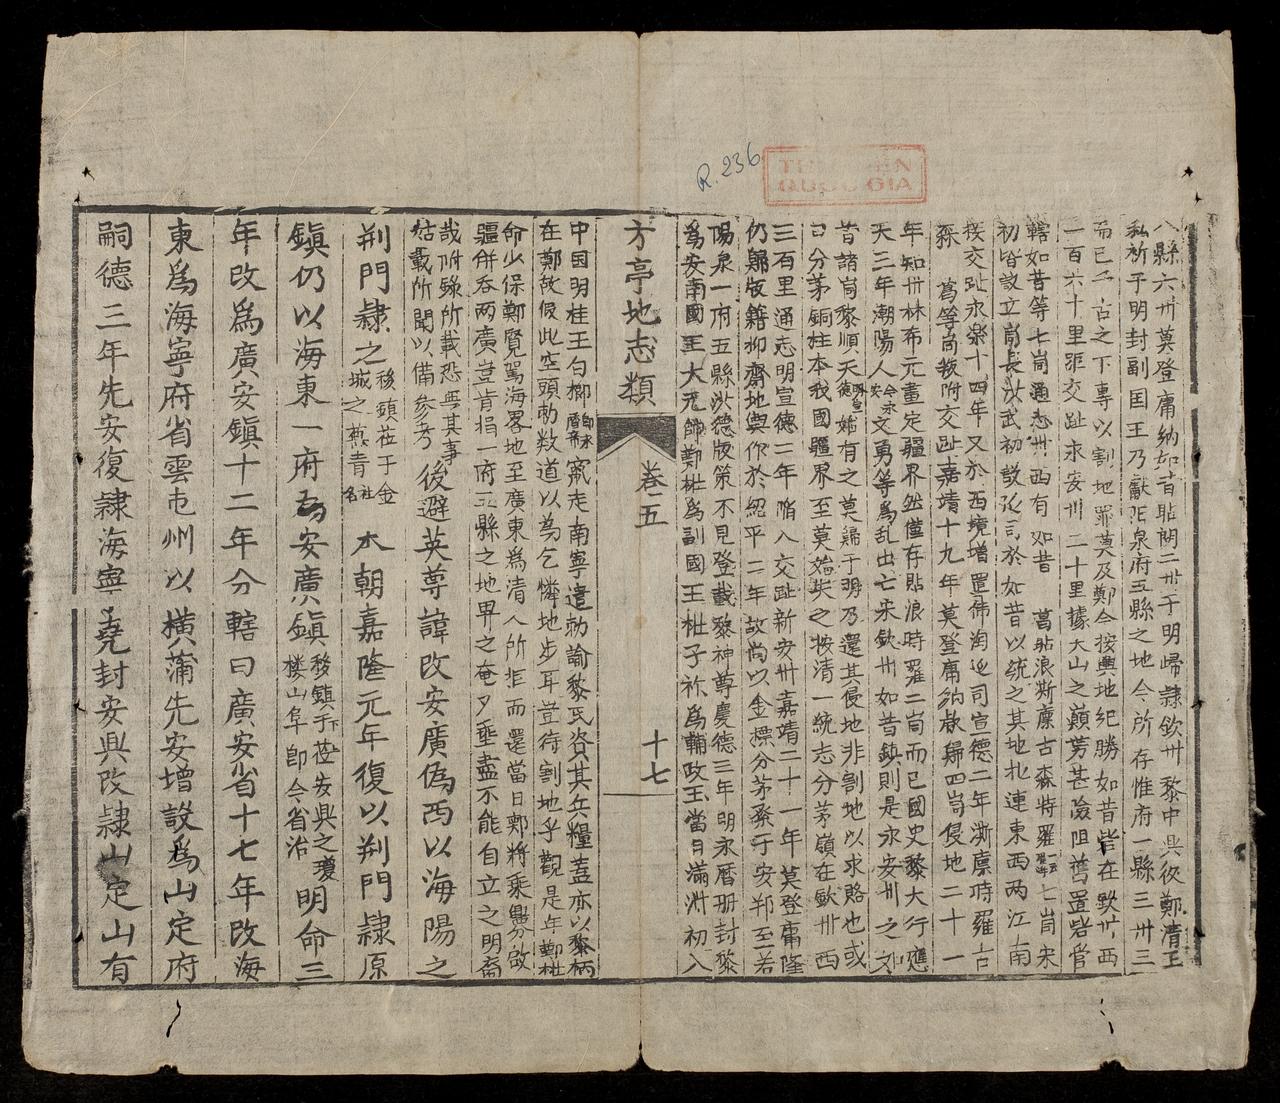 R.236
QUỐC GIA
八縣六州莫登庸納如昔貼閉二州于明歸隸欽州黎中興後鄭清王
私祈于明封副国王乃獻泉府五縣之地今所存惟府一縣三州三
而已千古之下專以割地罪莫及鄭今按輿地紀勝如昔砦在欽州西
一百六十里距交趾永安州二十里據大山之巔旁甚險阻舊置砦管
轄如昔等七峝通志州西有如昔 葛貼浪斯凛古森時羅七峝宋
初皆設立峝長洪武初設巡司於如昔以統之其地北連東西兩江南
接交趾永樂十四年又於西境增置佛淘巡司宣德二年澌凛時羅古
森 葛等峝叛附交趾嘉靖十九年莫登庸納款歸四峝侵地二十一
年知州林希元畫定疆界然僅存貼浪時羅二峝而已國史黎大行應
天三年潮陽人文勇等為乱出亡宋欽州如昔鎮則是永安州之文
昔諸峝黎順天始有之莫歸于明乃還其侵地非割地以求賂也或
曰分茅銅柱本我國疆界至莫始失之按清一統志分茅嶺在欽州西
三百里通志明宣德二年陷入交趾新安州嘉靖二十一年莫登庸隆
仍鄭版籍抑齋地輿作於紹平二年故尚以金標分茅發于安邦至若
陽泉一府五縣洪德版策不見登載黎神尊慶德三年明永曆册封黎
為安南國王大元帥鄭梉為副國王梉子祚為輔政王當日滿洲初入
方亭地志類 卷五 十七
中国明桂王自榔竄走南寧遣勅諭黎氏咨其兵糧蓋亦以黎柄
在鄭故假此空頭勅数道以為乞憐地步耳豈待割地乎觀是年鄭梉
命少保鄭覧駕海畧地至廣東為清人所拒而還當日鄭将乘釁啟
疆併吞兩廣豈肯捐一府五縣之地畀之奄夕垂盡不能自立之明裔
哉附錄所載恐無其事
姑載所聞以備參考
後避英尊諱改安廣偽西以海陽之
荆門隸之
後鎮莅于金
城之青
社名
本朝嘉隆元年復以荆門隸原
鎮仍以海東一府為安廣鎮
移鎮于莅安興之瓊
楼山阜即今省治
明命三
年改為廣安鎮十二年分轄曰廣安省十七年改海
東為海寧府省雲屯州以横蒲先安增設為山定府
嗣德三年先安復隸海寧堯封安興改隸山定山有